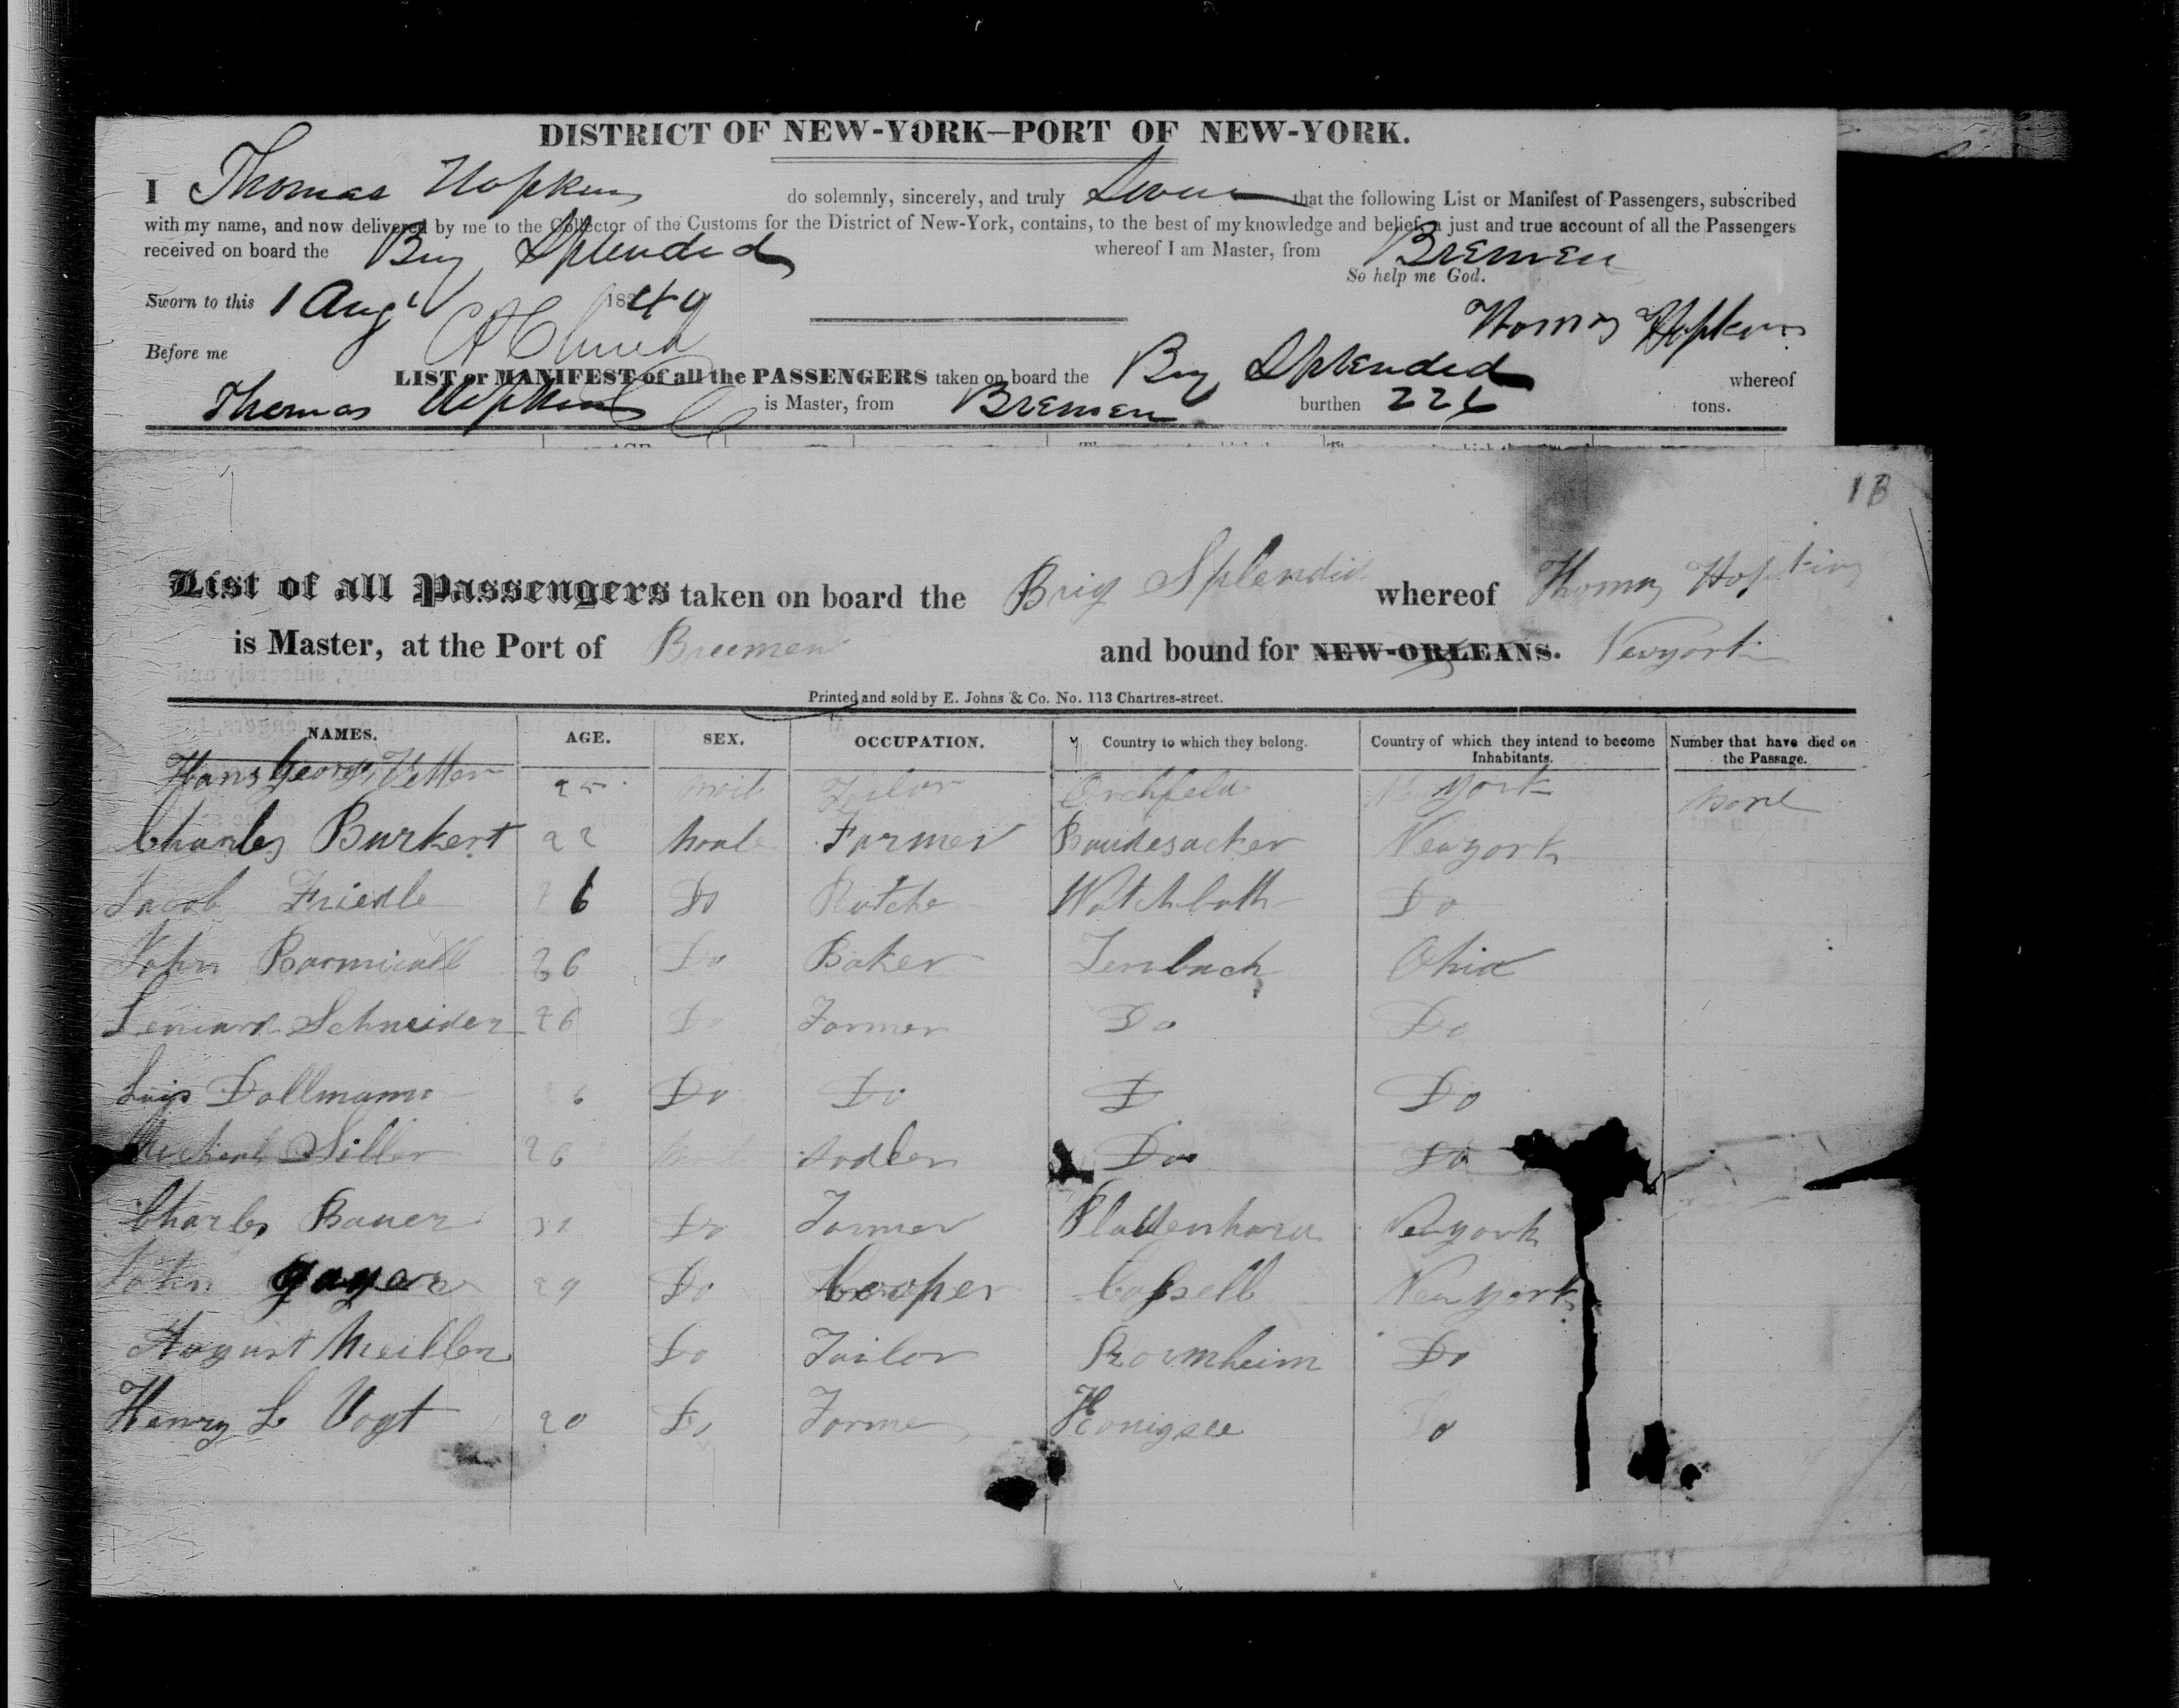 DISTRICT OF NEW-YORK—PORT OF NEW-YORK.
I Thomas Hopkins do solemnly, sincerely, and truly Swear that the following List or Manifest of Passengers, subscribed
with my name, and now delivered by me to the Collector of the Customs for the District of New-York, contains, to the best of my knowledge and belief, a just and true account of all the Passengers
received on board the Brig Splended whereof I am Master, from Bremen
So help me God.
Sworn to this 1 Augt 1840 Thomas Hopkins
Before me
LIST or MANIFEST of all the PASSENGERS taken on board the Brig Splended whereof
Thomas Hopkins is Master, from Bremen burthen 226 tons.
1B
List of all Passengers taken on board the Brig Splendid whereof Thomas Hopkins
is Master, at the Port of Breemen and bound for NEW-ORLEANS. Newyork
Printed and sold by E. Johns & Co. No. 113 Chartres-street.
NAMES. AGE. SEX. OCCUPATION. Country to which they belong. Country of which they intend to become Inhabitants. Number that have died on the Passage.
Hans George Vetter 25 Tailor York None
Charles Burkert 22 Male Farmer Newyork
Jacob Friedle 26 Do Do
John 26 Do Baker Lembach Ohio
Schneider 26 Do Farmer Do Do
Dollmann Do Do D Do
Siller 26 Do Do
Charles Bauer 31 Do Farmer Plattenhard Newyork
John gayer 29 Do Cooper Cassell Newyork
August Meiller Do Tailor Do
Henry L Vogt 20 Do Farmer Honigsee Do